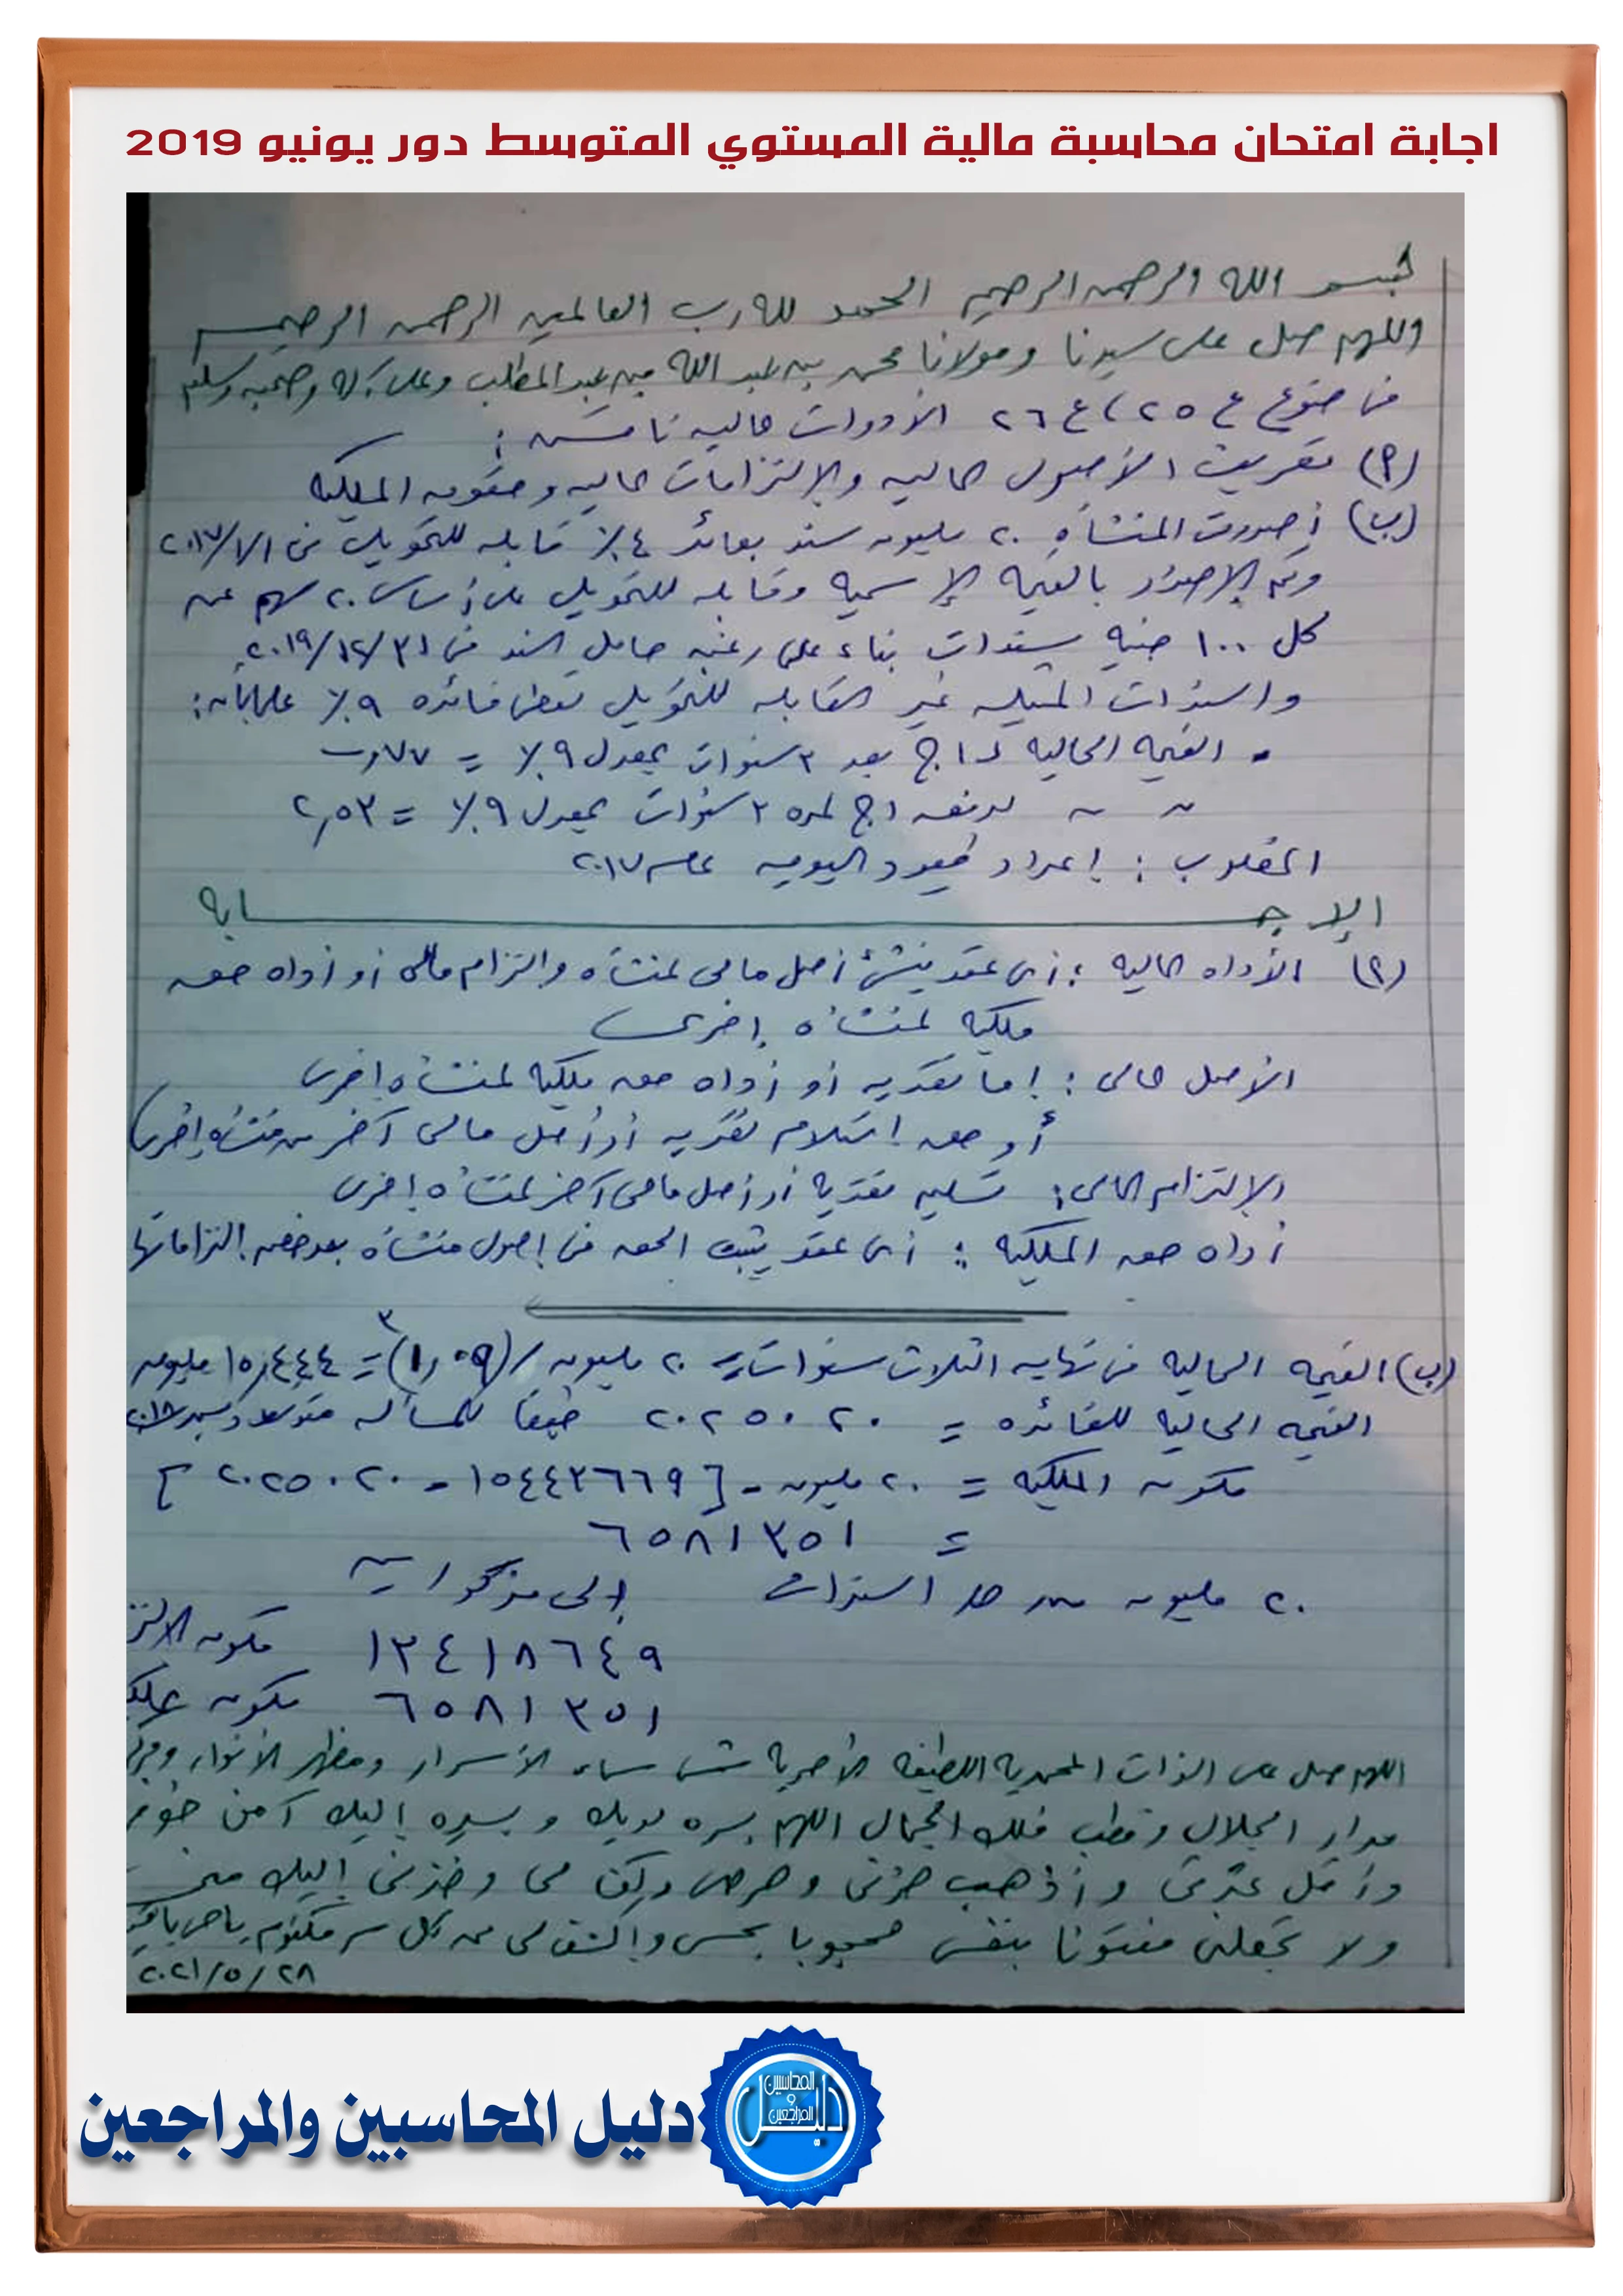 اجابة امتحان محاسبة مالية المستوي المتوسط دور يونيو 2019
بسم الله الرحمن الرحيم الحمد لله رب العالمين الرحمن الرحيم
واللهم صل على سيدنا ومولانا محمد بن عبد الله بن عبد المطلب وعلى آله وصحبه وسلم
فى ضوء ع ٢٥، ع ٢٦ الأدوات المالية ناقش :
(أ) تعريف الأصول المالية والالتزامات المالية وحقوق الملكية
(ب) أصدرت المنشأة ٢٠ مليون سند بعائد ٤٪ قابلة للتحويل فى ١/١/٢٠١٧
وتم الإصدار بالقيمة الإسمية وقابله للتحويل على أساس ٢٠ سهم عن
كل ١٠٠ جنيه سندات بناء على رغبة حامل السند فى ٣١/١٢/٢٠١٩
والسندات المثيلة غير القابلة للتحويل تعطى فائدة ٩٪ علما بأن :
• القيمة الحالية لـ ١ج بعد ٣ سنوات بمعدل ٩٪ = ٧٧و
~ ~ لدفعه ١ج لمدة ٣ سنوات بمعدل ٩٪ = ٢,٥٣
المطلوب : إعداد قيود اليومية عام ٢٠١٧
الإجـــــابة
(أ) الأداه المالية : أى عقد ينشئ أصل مالى لمنشأه والتزام مالى أو أداه حق
ملكية لمنشأه إخرى
الأصل المالى : إما نقدية أو أداه حق ملكية لمنشأه إخرى
أو حق إستلام نقديه أو أصل مالى آخر من منشأه إخرى
الإلتزام المالى : تسليم نقدية أو أصل مالى آخر لمنشأه إخرى
أداه حق الملكية : أى عقد يثبت الحق فى إصول منشأه بعد خصم التزاماتها
(ب) القيمه الحالية فى نهاية الثلاث سنوات = ٢٠ مليون / (١,٠٩)٣ = ١٥,٤٤٤ مليون
القيمه الحالية للفائده = ٢٠٢٥٠٢٠ طبقا للمسألة متوسط ديسمبر ٢٠١٨
مكون الملكية = ٢٠ مليون - [١٥٤٤٣٦٦٩ - ٢٠٢٥٠٢٠]
= ٦٥٨١٣٥١
٢٠ مليون من حـ/ السندات إلى مذكورين
١٣٤١٨٦٤٩ مكون الالتز
٦٥٨١٣٥١ مكون ملك
اللهم صل على الذات المحمدية اللطيفة الأحدية شمس سماء الأسرار ومظهر الأنوار ومركز
مدار الجلال وقطب فلك الجمال اللهم بسره لديك وبسيره إليك آمن خوفى
وأقل عثرتى وأذهب حزنى وحرصى وكن لى وخذنى إليك منى
ولا تجعلنى مفتونا بنفسى محجوبا بحسى واكشف لى عن كل سر مكتوم ياحى ياقيوم
٢٨/٥/٢٠٢١
دليل المحاسبين والمراجعين
دليل المحاسبين و المراجعين